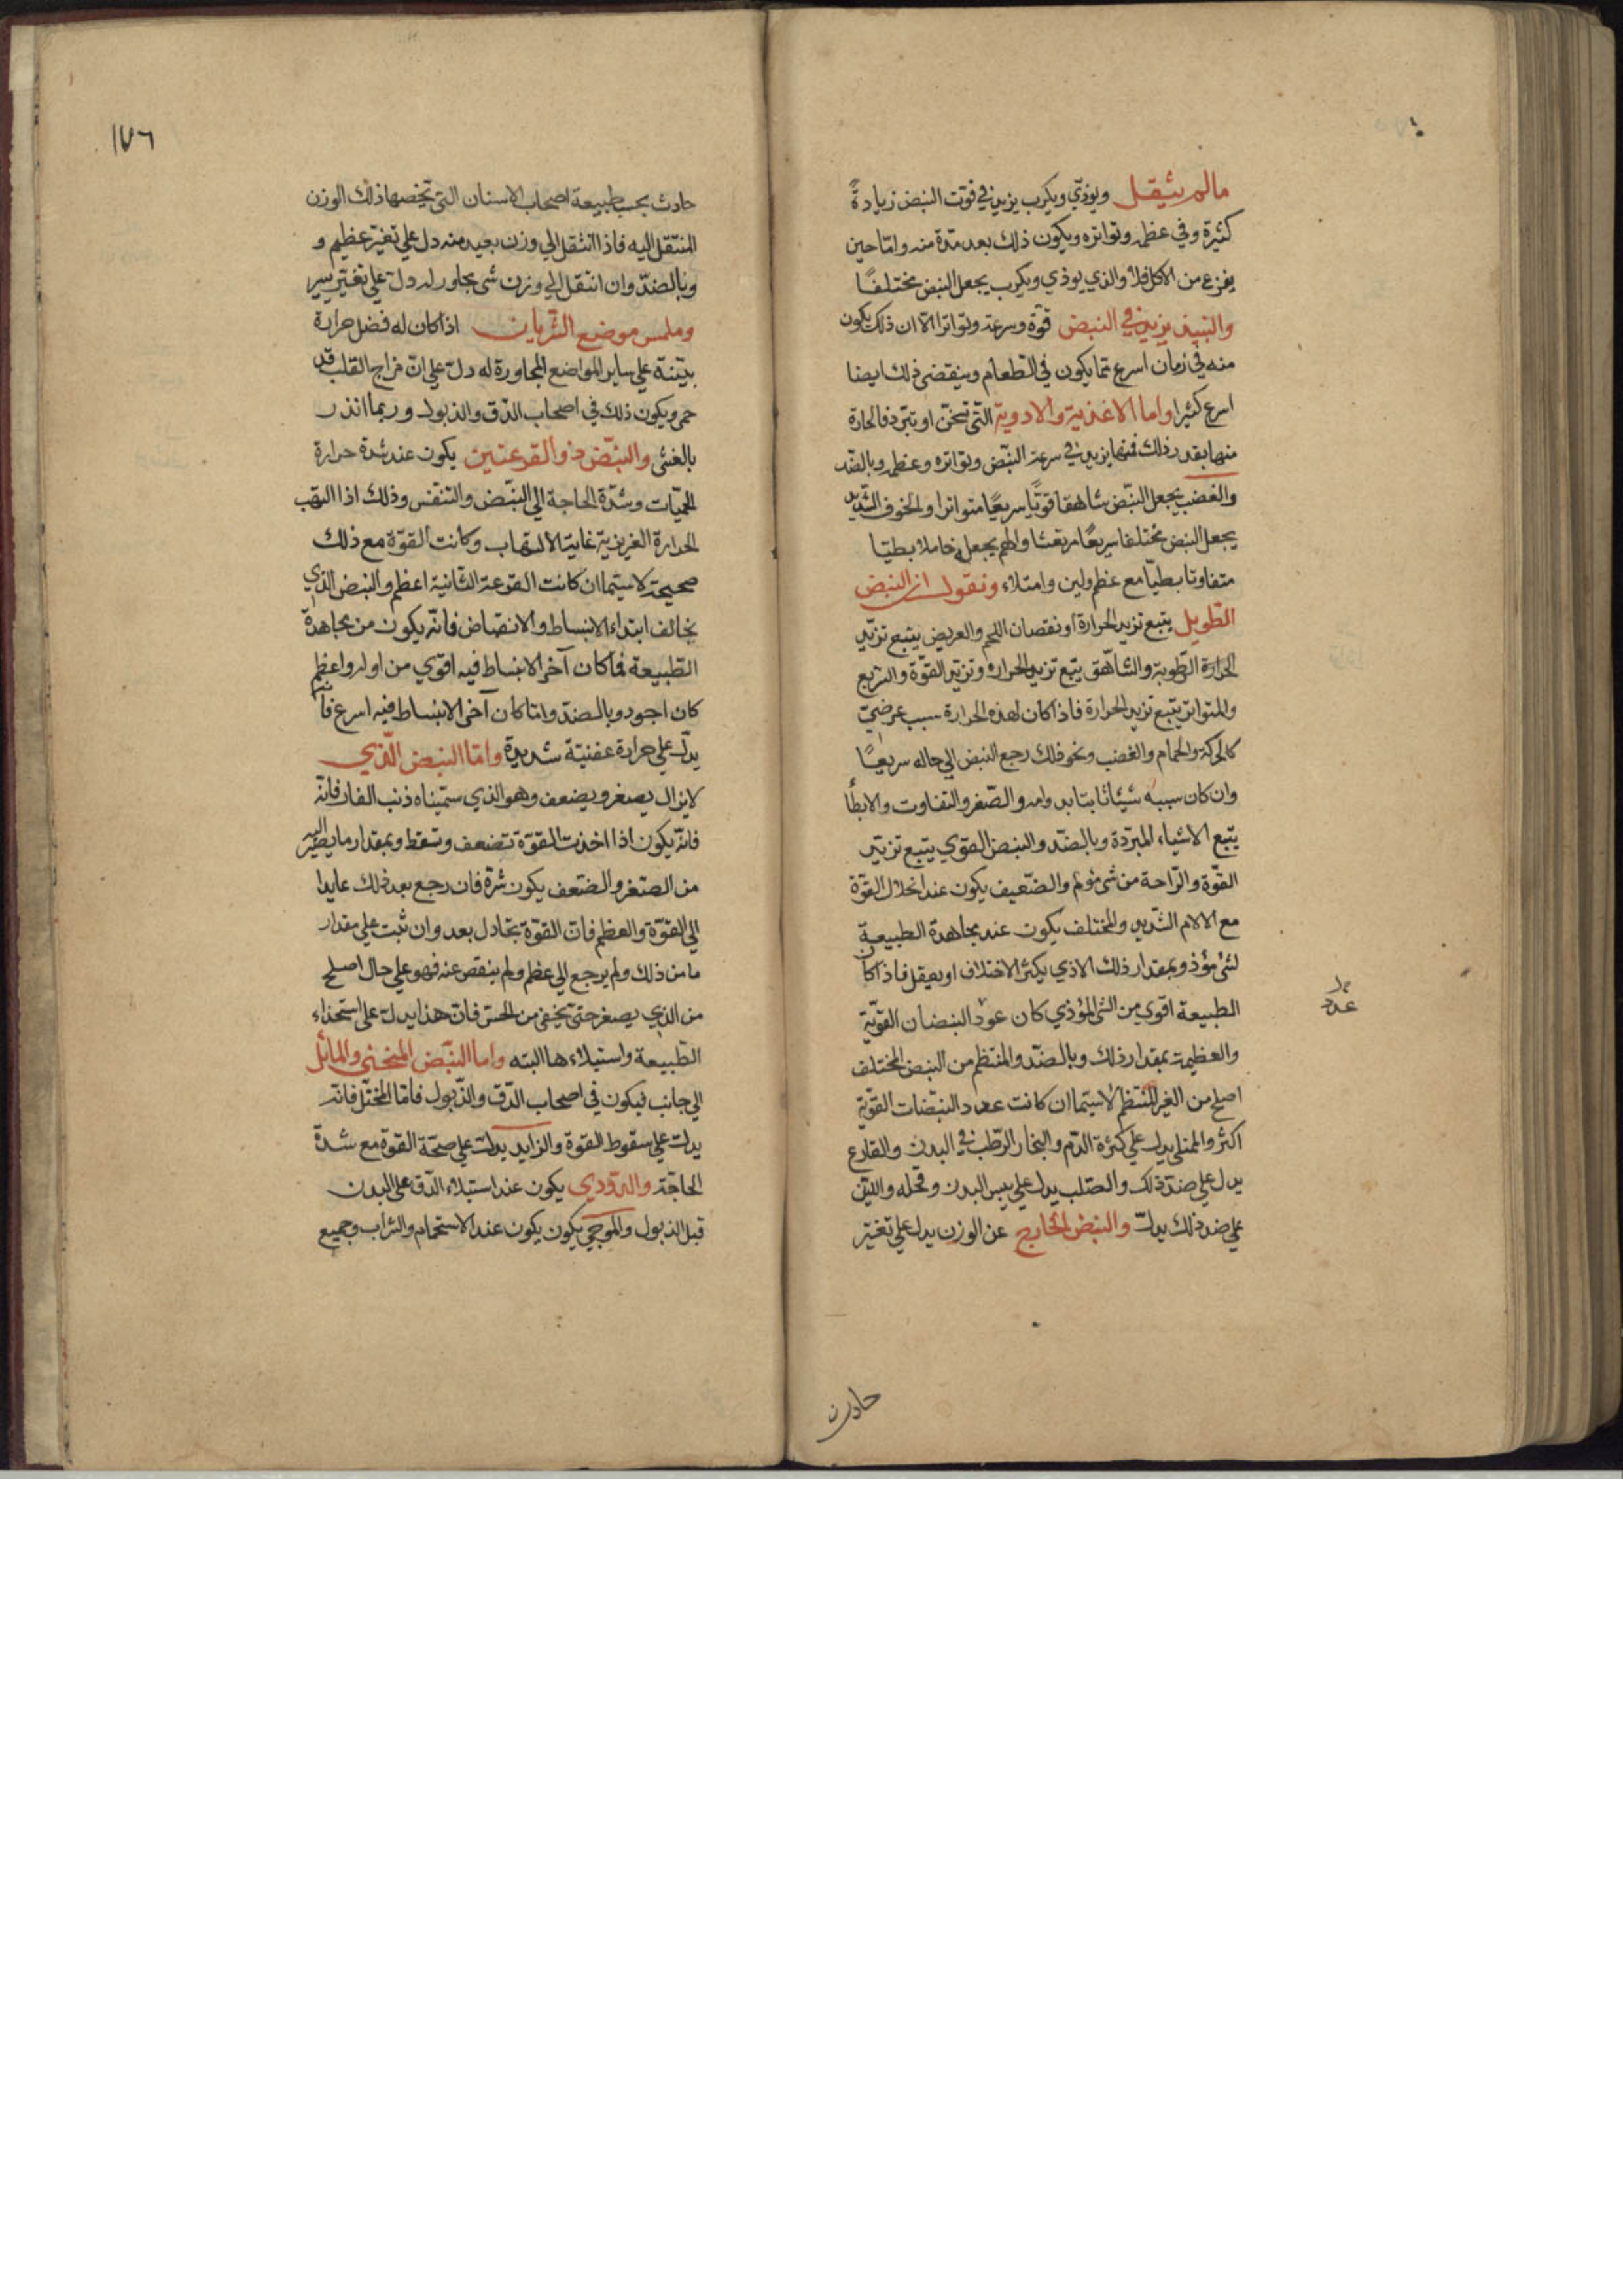 مالم يثقل ويوذي ويكرب يزيد في قوت النبض زيادةً
كثيرة وفي عظمه وتواتره ويكون ذلك بعد مدة منه واما حين
يفرغ من الاكل فلا والذي يوذي ويكرب يجعل النبض مختلفًا
والنبيذ يزيد في النبض قوة وسرعة وتواترا الا ان ذلك يكون
منه في زمان اسرع مما يكون في الطعام وينقضي ذلك ايضا
اسرع كثيرا واما الاغذية والادوية التي تسخن او تبرد فالحارة
منها بقدر ذلك فيها يزيد في سرعة النبض وتواتره وعظمه وبالضد
والغضب يجعل النبض شاهقا قويًا سريعًا متواترا والخوف الشديد
يجعل النبض مختلفا سريعًا مرتعشا والهم يجعله خاملا بطيا
متفاوتا بطيا مع عظم ولين وامتلاء ونقول ان النبض
الطويل يتبع تزيد الحرارة او نقصان اللحم والعريض يتبع تزيد
الحرارة الرطوبة والشاهق يتبع تزيد الحرارة وتزيد القوة والسريع
والمتواتر يتبع تزيد الحرارة فاذا كان لهذه الحرارة سبب عرضي
كالحركة والحمام والغضب ونحو ذلك رجع النبض الي حاله سريعًا
وان كان سببه شيئا ثابتا بدوامه والصغر والتفاوت والابطأ
يتبع الاشياء المبردة وبالضد والنبض القوي يتبع تزيد
القوة والراحة من شي مؤلم والضعيف يكون عند انحلال القوة
مع الالام الشديد والمختلف يكون عند مجاهدة الطبيعة
لشئ مؤذ وبمقدار ذلك الاذي يكثر الاختلاف او يعقل فاذا كان
الطبيعة اقوي من الشئ المؤذي كان عود النبضان القوية
عدد
والعظيمة بمقدار ذلك وبالضد والمنتظم من النبض المختلف
اصلح من الغير المنتظم لاسيما ان كانت عدد النبضات القوية
اكثر والممتلي يدل علي كثرة الدم والبخار الرطب في البدن والفارغ
يدل علي ضد ذلك والصلب يدل علي يبس البدن وقحله واللين
علي ضد ذلك يدل والنبض الخارج عن الوزن يدل علي تغير
حادث
١٧٦
حادث بحسب طبيعة اصحاب الاسنان التي تخصها ذلك الوزن
المنتقل اليه فاذا انتقل الي وزن بعيد منه دل علي تغير عظيم و
وبالضد وان انتقل الي وزن شي مجاور له دل علي تغير يسير
وملمس موضع الشريان اذا كان له فضل حرارة
بينة علي ساير المواضع المجاورة له دل علي ان مزاج القلب قد
حمي ويكون ذلك في اصحاب الدق والذبول وربما انذر
بالغشي والنبض ذو القرعتين يكون عند شدة حرارة
الحميات وشدة الحاجة الي النبض والتنفس وذلك اذا التهب
الحرارة الغريزية غاية الالتهاب وكانت القوة مع ذلك
صحيحة لاسيما ان كانت القرعة الثانية اعظم والنبض الذي
يخالف ابتداء الانبساط والانقباض فانه يكون من مجاهدة
الطبيعة فما كان آخر الانبساط فيه اقوي من اوله واعظم
كان اجود وبالضد واما كان آخر الانبساط فيه اسرع فانه
يدل علي حرارة عفنية شديدة واما النبض الذي
لايزال يصغر ويضعف وهو الذي سميناه ذنب الفار فانه
فانه يكون اذا اخذت القوة تضعف وتسقط وبمقدار ما يصير اليه
من الصغر والضعف يكون شرة فان رجع بعد ذلك عايدا
الي القوة والعظم فان القوة تجادل بعد وان ثبت علي مقدار
ما من ذلك ولم يرجع الي عظم ولم ينقص عنه فهو علي حال اصلح
من الذي يصغر حتي يخفي من الحس فان هذا يدل علي استحذاء
الطبيعة واستيلاءها البته واما النبض المنحني والمائل
الي جانب فيكون في اصحاب الدق والذبول فاما المختل فانه
يدل علي سقوط القوة والزايد يدل علي صحة القوة مع شدة
الحاجة والدودي يكون عند استيلاء الدق علي البدن
قبل الذبول والموجي يكون يكون عند الاستحمام والشراب وجميع